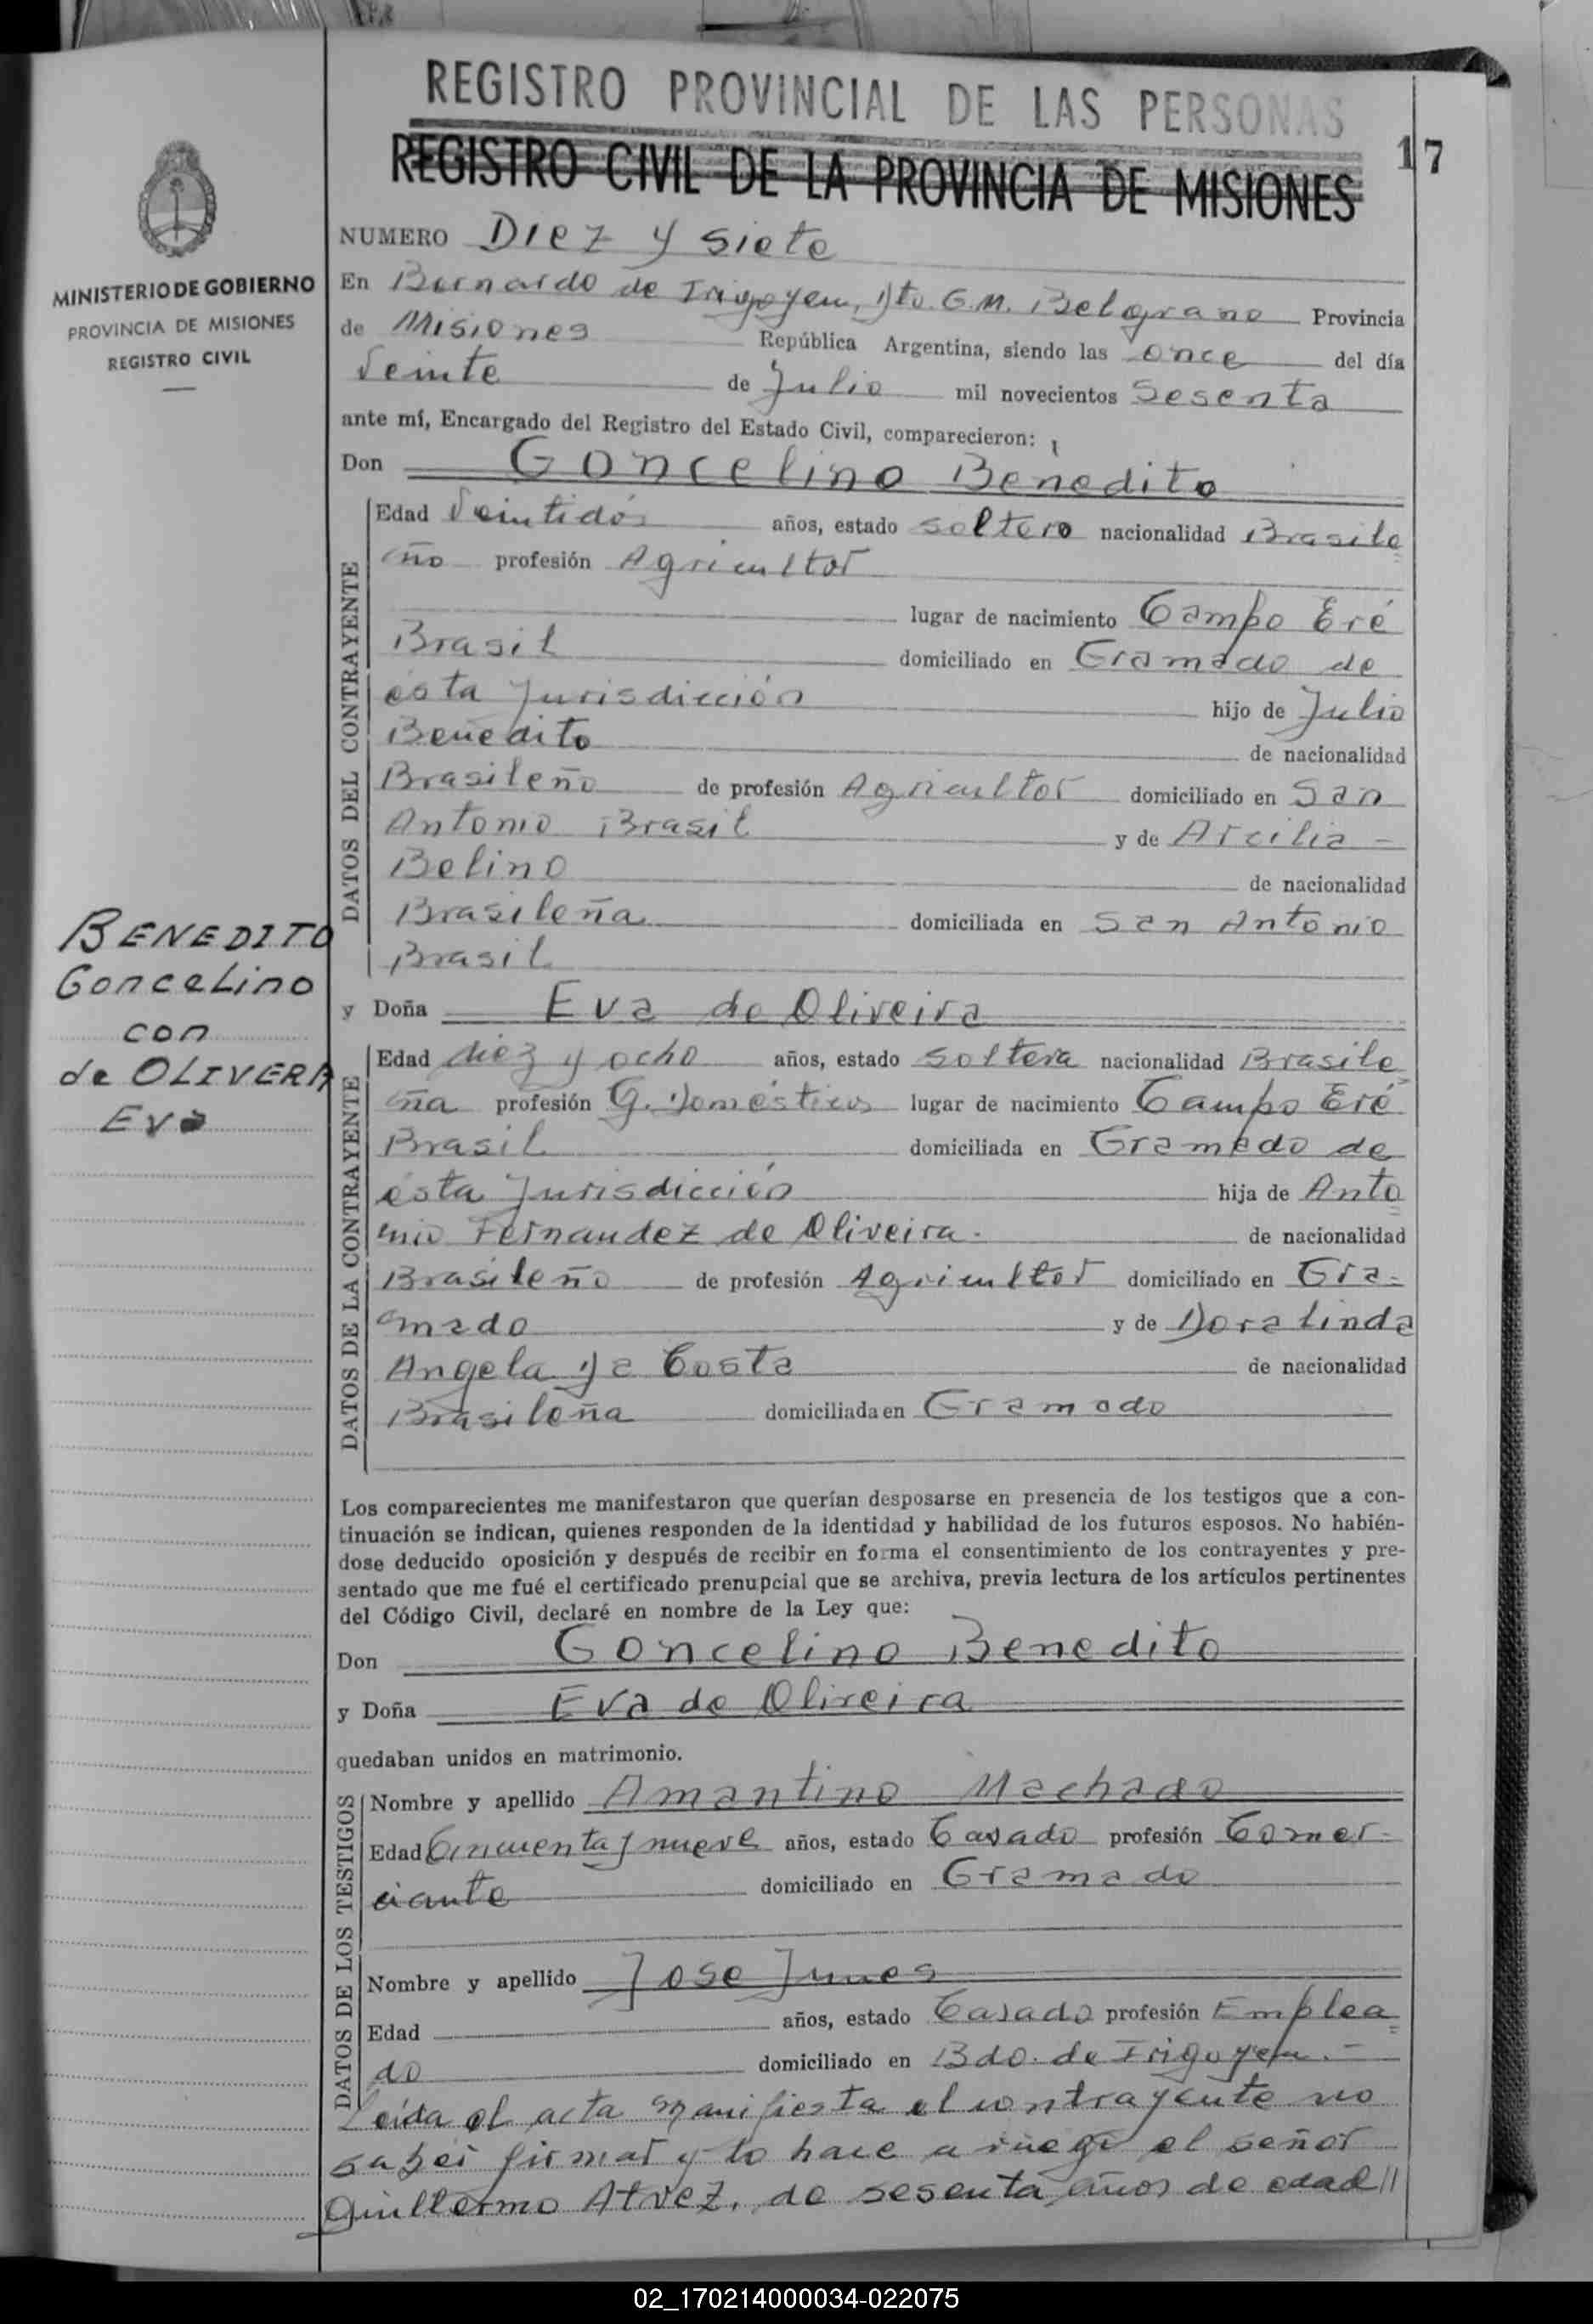 REGISTRO PROVINCIAL DE LAS PERSONAS
REGISTRO CIVIL DE LA PROVINCIA DE MISIONES
17
MINISTERIO DE GOBIERNO
PROVINCIA DE MISIONES
REGISTRO CIVIL
NUMERO Diez y siete
En Bernardo de Irigoyen, Dto. G.M. Belgrano Provincia
de Misiones República Argentina, siendo las once del día
Veinte de Julio mil novecientos Sesenta
ante mí, Encargado del Registro del Estado Civil, comparecieron:
Don Goncelino Benedito
DATOS DEL CONTRAYENTE
Edad Veintidós años, estado soltero nacionalidad Brasile
ño profesión Agricultor
lugar de nacimiento Campo Eré
Brasil domiciliado en Gramado de
ésta Jurisdicción hijo de Julio
Benedito de nacionalidad
Brasileño de profesión Agricultor domiciliado en San
Antonio Brasil y de Arcilia -
Belino de nacionalidad
Brasileña domiciliada en San Antonio
Brasil
BENEDITO
Goncelino
con
de OLIVERA
Eva
y Doña Eva de Oliveira
DATOS DE LA CONTRAYENTE
Edad diez y ocho años, estado soltera nacionalidad Brasile
ña profesión Q. Domésticos lugar de nacimiento Campo Eré
Brasil domiciliada en Gramado de
ésta Jurisdicción hija de Anto
nio Fernandez de Oliveira. de nacionalidad
Brasileño de profesión Agricultor domiciliado en Gra-
mado y de Doralinda
Angela Da Costa de nacionalidad
Brasileña domiciliada en Gramado
Los comparecientes me manifestaron que querían desposarse en presencia de los testigos que a con-
tinuación se indican, quienes responden de la identidad y habilidad de los futuros esposos. No habién-
dose deducido oposición y después de recibir en forma el consentimiento de los contrayentes y pre-
sentado que me fué el certificado prenupcial que se archiva, previa lectura de los artículos pertinentes
del Código Civil, declaré en nombre de la Ley que:
Don Goncelino Benedito
y Doña Eva de Oliveira
quedaban unidos en matrimonio.
DATOS DE LOS TESTIGOS
Nombre y apellido Amantino Machado
Edad Cincuenta y nueve años, estado Casado profesión Comer-
ciante domiciliado en Gramado
Nombre y apellido Jose Junes
Edad años, estado Casado profesión Emplea
do domiciliado en Bdo. de Irigoyen.-
Leída el acta manifiesta el contrayente no
saber firmar y lo hace a ruego el señor
Guillermo Alvez, de sesenta años de edad//
02_170214000034-022075